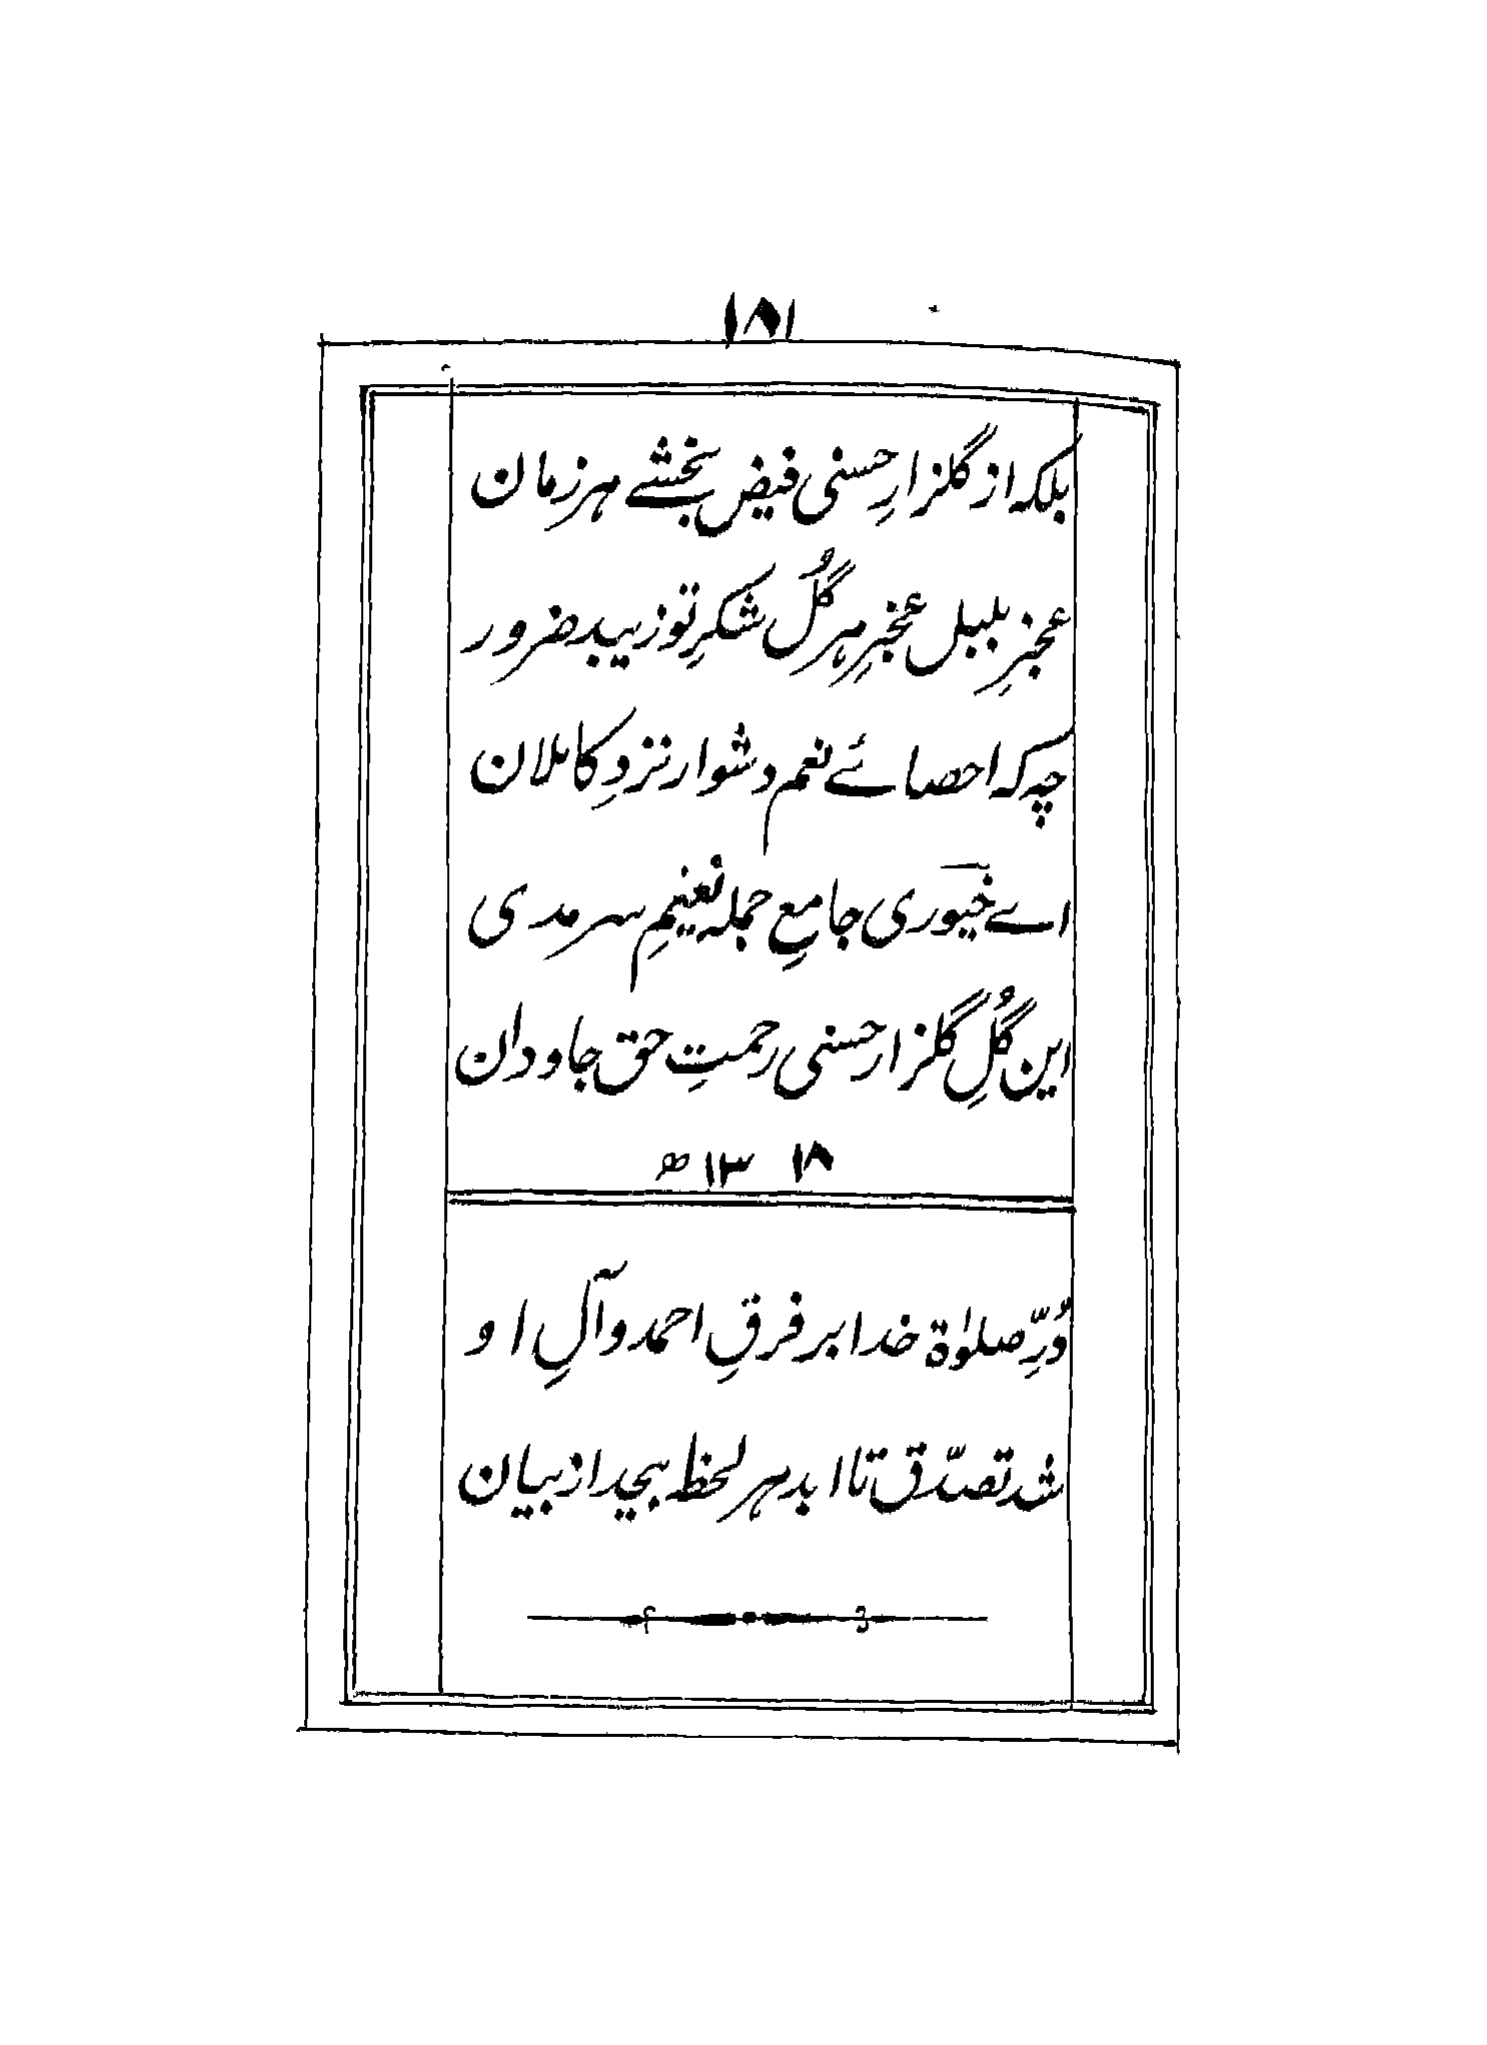 ۱۸۱
بلکہ از گلزارِ حسنی فیض بخشے ہر زمان
عجزِ بلبل عجزِ ہر گُل شکرِ تو زیبد ضرور
چہ کہ احصائے نعم دشوار نزدِ کاملان
اے خیوری جامعِ جملہ نعیمِ سرمدی
این گُلِ گلزار حسنی رحمتِ حق جاودان
۱۳ ۱۸ ھ
دُرِّ صلوٰة خدا بر فرقِ احمد و آلِ او
شد تصدّق تا ابد ہر لحظ بیحد از بیان